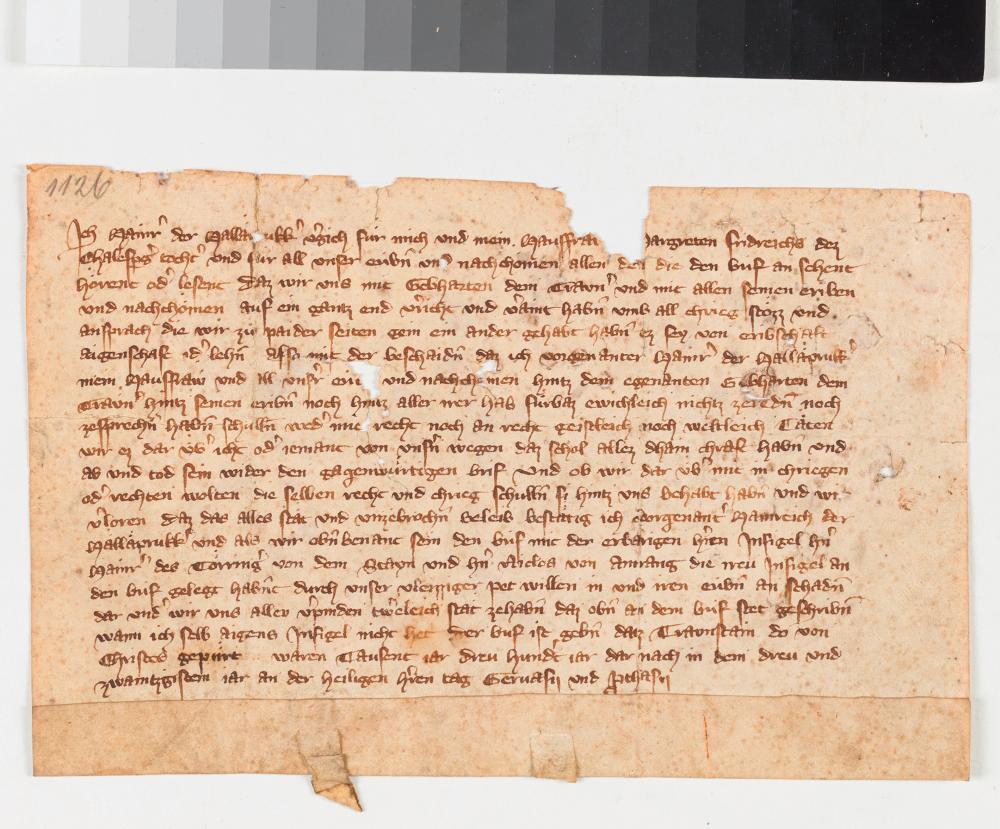 1126
Ich Hainr̄ der Halla ukk v̄gich fur mich vnd mein Hausfra argreten fridreichs dez
tocht̄ vnd fur all vnser eribn̄ vn nachchomen allen den die den brif an sehent
hörent od̄ lesent Daz wir vns mit Gebharten dem Trawn̄ vnd mit allen seinen eriben
vnd nachchomen auf ein gantz end v̄richt vnd v̄aint habn̄ vmb all chrieg stözz vnd
ansprach die wir zu paider seiten gein ein ander gehabt habn̄ ez sey von eribschaft
aigenschaft od̄ lehn̄ also mit der beschaidn̄ daz ich vorgenanter Hainr̄ der Hallaprukk̄
mein Hausfraw vnd all vnsr̄ eri vnd nachchomen hintz dem egenanten Gebharten dem
Trawn̄ hintz seinen eribn̄ noch hintz aller irer hab fürbaz ewichleich nichtz zeredn̄ noch
zesprechn̄ habn̄ schulln̄ wed̄ mit recht noch an recht geistleich noch weltleich Taten
wir ez dar vb̄ icht od̄ iemant von vnsn̄ wegen daz schol allez dhain chraft habn̄ vnd
ab vnd tod sein wider den gagenwürtigen brif vnd ob wir dar vb̄ mit in chriegen
od̄ rechten wolten die selben recht vnd chrieg schulln̄ si hintz vns behabt habn̄ vnd wi
v̄loren daz das alles stät vnd vnzebrochn̄ beleib bestätig ich vorgenant̄ Hainreich der
Hallaprukk̄ vnd als wir obn̄ benant sein den brif mit der erbärigen hr̄en Insigel hn̄
Hainr̄ des Törrinḡ von dem Stayn vnd hn̄ Nicles von Amrang die ireu Insigel an
den brif gelegt habnt durch vnser vleizziger pet willen in vnd iren eribn̄ an schadn̄
dar vnd̄ wir vns aller v̄pinden treweleich stät zehabn̄ daz obn̄ an dem brif stet geschribn̄
wann ich selb aigens Insigel nicht het der brif ist gebn̄ datz Trawnstain do von
Christes gepürt waren Tausent iar dreu hundt̄ iar dar nach in dem dreu vnd
zwaintzgistem iar an der heiligen hr̄en tag Gervasii vnd Prthasii